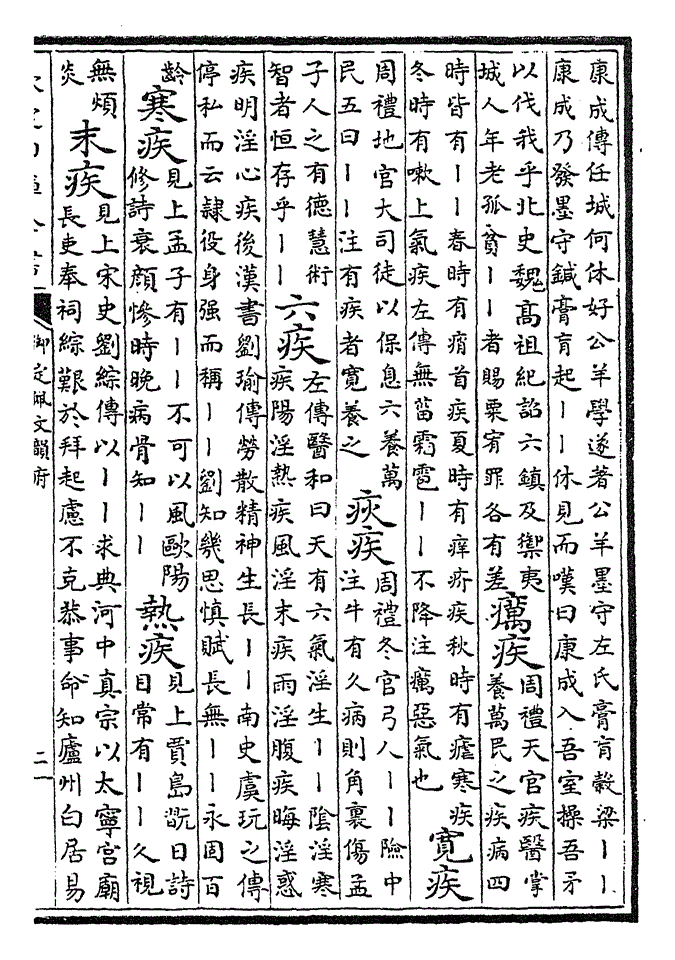 康成傳任城何休好公羊學遂著公羊墨守左氏膏肓穀梁丨丨
康成乃發墨守鍼膏肓起丨丨休見而嘆曰康成入吾室操吾矛
以伐我乎北史魏高祖紀詔六鎮及禦夷
城人年老孤貧丨丨者賜粟宥罪各有差
癘疾
周禮天官疾醫掌
養萬民之疾病四
時皆有丨丨春時有痟首疾夏時有痒疥疾秋時有瘧寒疾
冬時有嗽上氣疾左傳無菑霜雹丨丨不降注癘惡氣也
寬疾
周禮地官大司徒以保息六養萬
民五曰丨丨注有疾者寬養之
疢疾
周禮冬官弓人丨丨險中
注牛有久病則角裏傷孟
子人之有德慧術
智者恒存乎丨丨
六疾
左傳醫和曰天有六氣淫生丨丨陰淫寒
疾陽淫熱疾風淫末疾雨淫腹疾晦淫惑
疾明淫心疾後漢書劉瑜傳勞散精神生長丨丨南史虞玩之傳
停私而云隷役身强而稱丨丨劉知幾思慎賦長無丨丨永固百
齡
寒疾
見上孟子有丨丨不可以風歐陽
修詩衰顔慘時晚病骨知丨丨
熱疾
見上賈島翫日詩
目常有丨丨久視
無煩
炎
末疾
見上宋史劉綜傳以丨丨求典河中真宗以太寧宮廟
長吏奉祠綜艱於拜起慮不克恭事命知廬州白居易
御定佩文韻府
二一